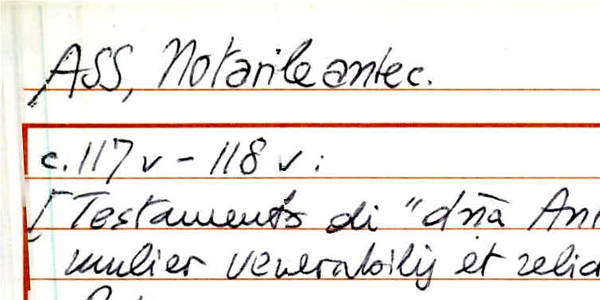 ASS, Notarile antec.
c. 117 v - 118 v:
[Testamento di "dnā
mulier venerabilis et